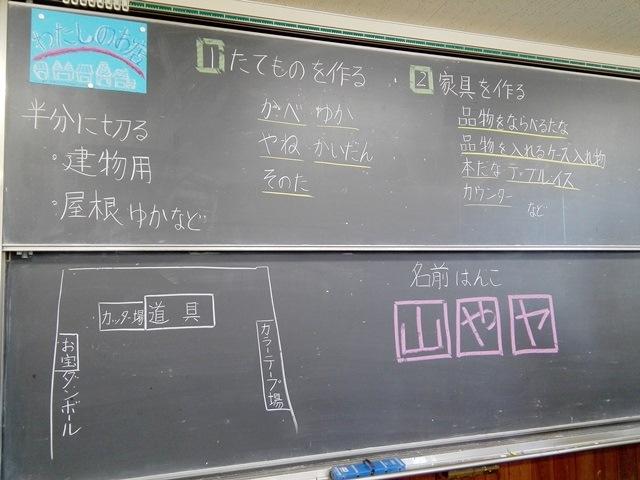 わたしのお店
半分に切る
・建物用
・屋根ゆかなど
1 たてものを作る
かべ ゆか
やね かいだん
そのた
2 家具を作る
品物をならべるたな
品物を入れるケース入れ物
本だな テーブル・イス
カウンター など
カッター場 道具
お宝ダンボール
カラーテープ場
名前はんこ
山 や ヤ